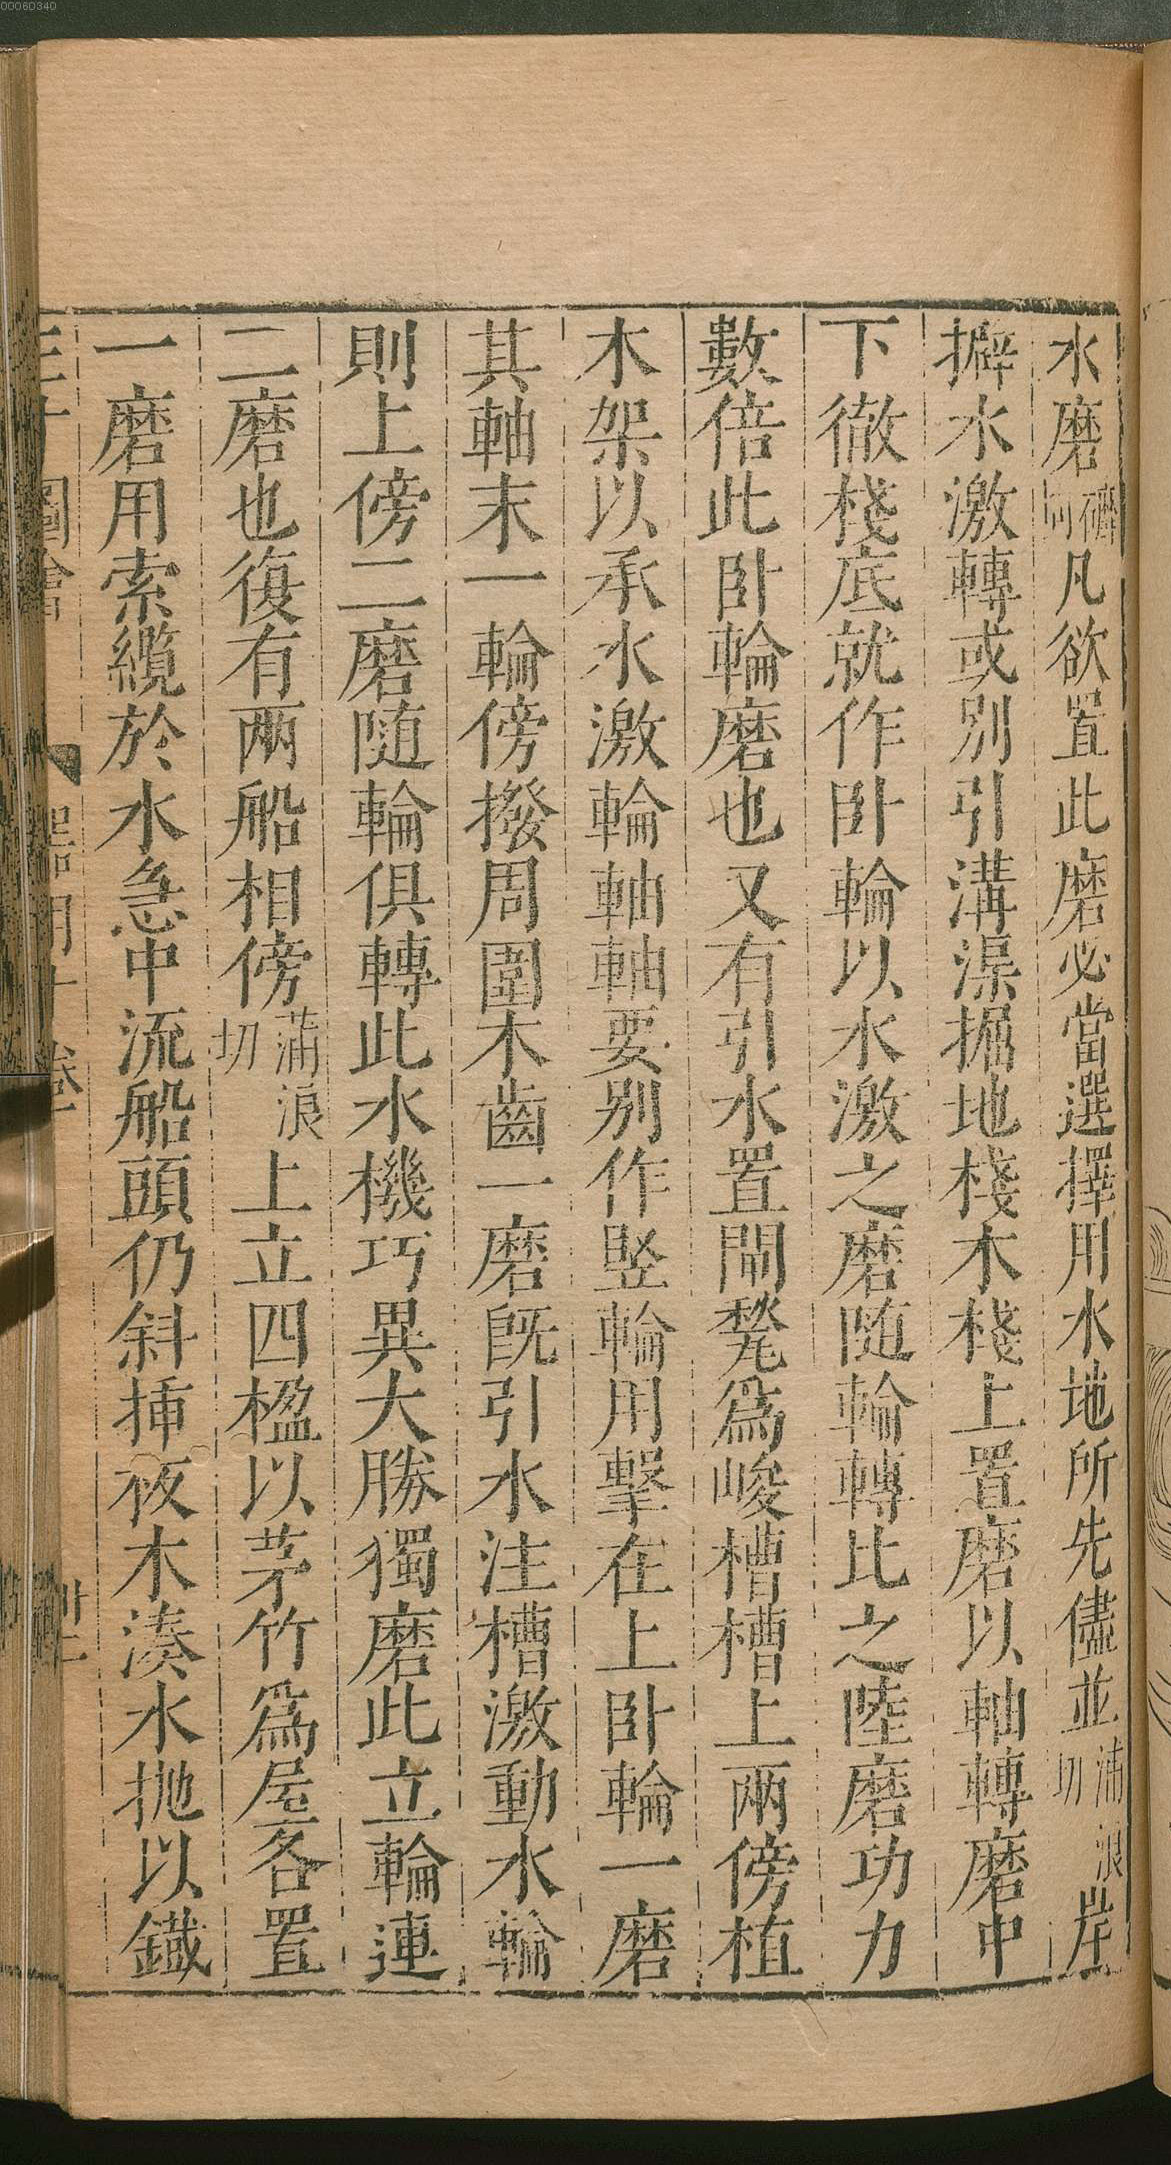 水磨礳同凡欲置此磨必當選擇用水地所先儘並蒲浪切岸
擗水激轉或別引溝渠掘地棧木棧上置磨以軸轉磨中
下徹棧底就作卧輪以水激之磨随輪轉比之陸磨功力
數倍此卧輪磨也又有引水置閘甃爲峻槽槽上兩傍植
木架以承水激輪軸軸要别作竪輪用擊在上卧輪一磨
其軸末一輪傍撥周圍木齒一磨旣引水注槽激動水輪
則上傍二磨随輪俱轉此水機巧異大勝獨磨此立輪連
二磨也復有兩船相傍蒲浪切上立四楹以茅竹爲屋各置
一磨用索纜於水急中流船頭仍斜揷板木湊水抛以鐵
三才圖會 器用十卷 卅二
00060340